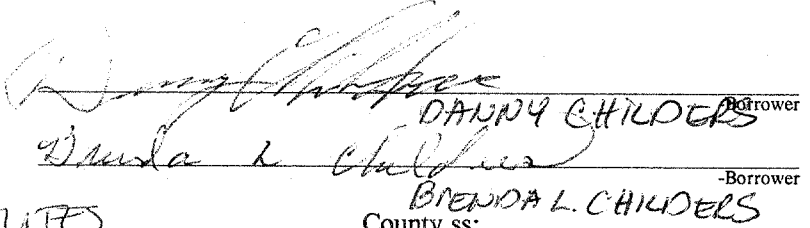 Danny Childers
DANNY CHILDERS -Borrower
Brenda L Childers
-Borrower
BRENDA L. CHILDERS
County ss: